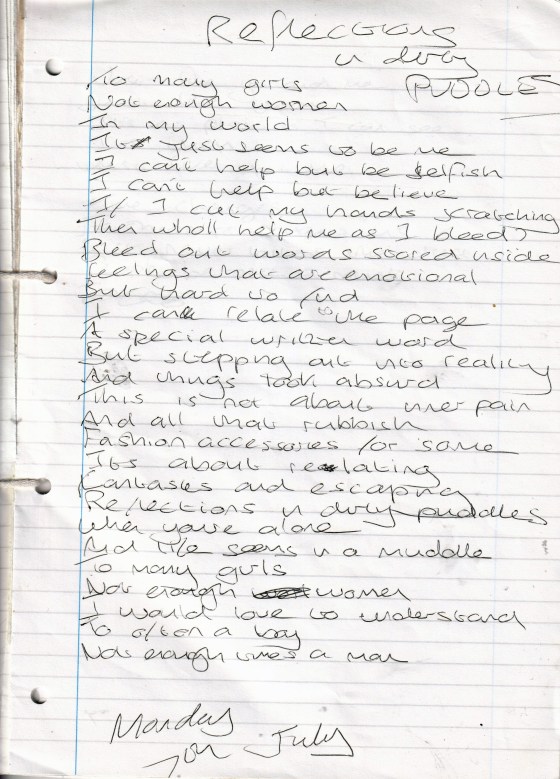 Reflections
in dirty
PUDDLE
To many girls
Not enough women
In my world
Its just seems to be me
I can't help but be selfish
I can't help but believe
If I cut my hands scratching
Then who'll help me as I bleed?
Bleed out words stored inside
Feelings that are emotional
But hard to find
I can relate to the page
A special written word
But stepping out into reality
And things look absurd
This is not about inner pain
And all that rubbish
Fashion accessories for some
Its about relating
Fantasies and escaping
Reflections in dirty puddles
When your alone
And life seems in a muddle
To many girls
Not enough women
I would love to understand
To often a boy
Not enough times a man
Monday
July